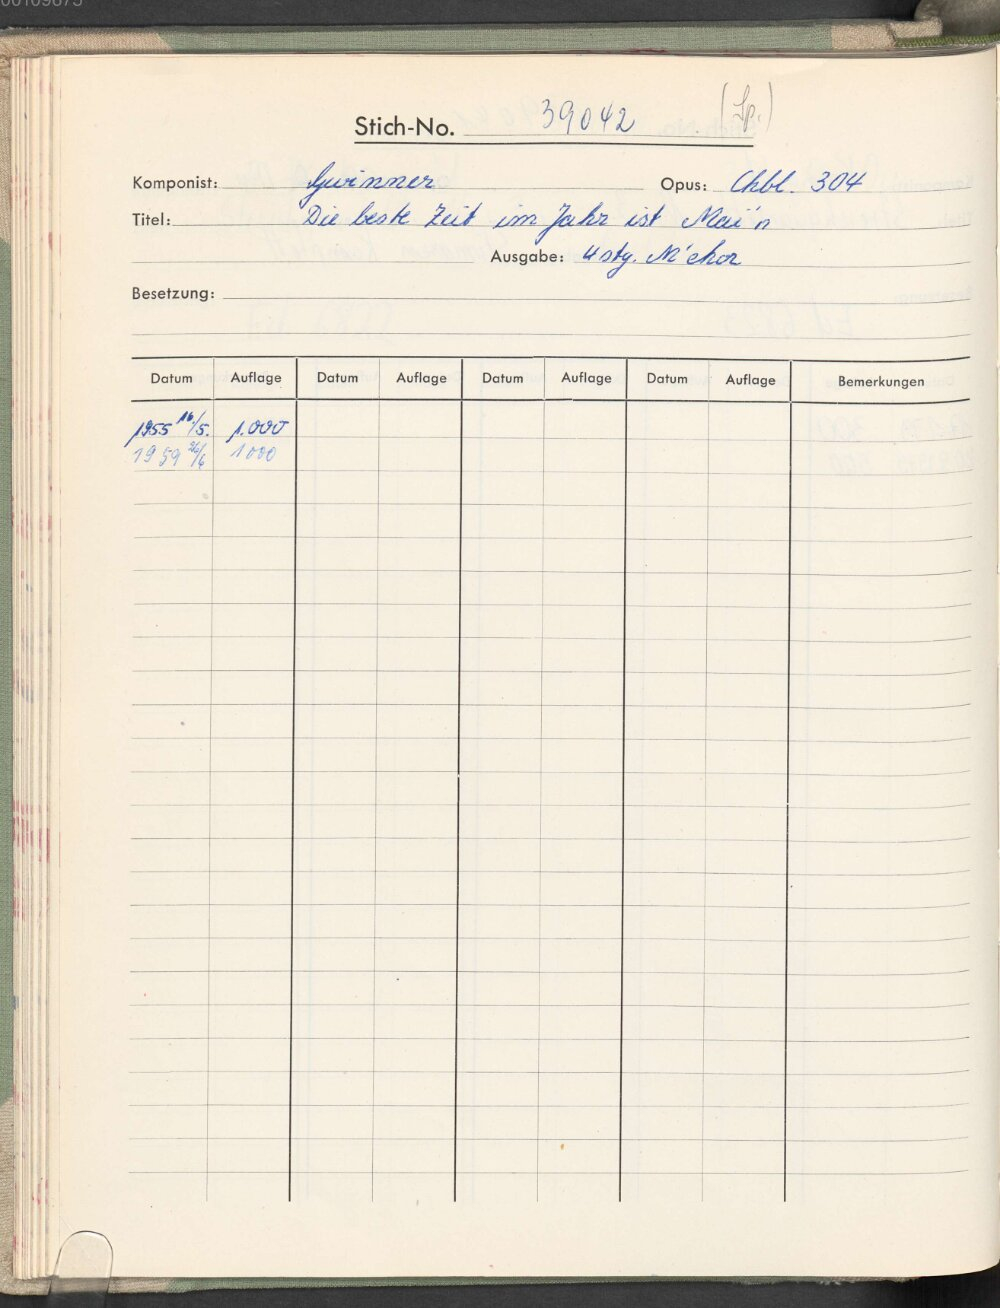 Stich-No. 39042 (Sp.)
Komponist: Gwinner Opus: Chbl. 304
Titel: Die beste Zeit im Jahr ist Mai'n
Ausgabe: 4 stg. M'chor
Besetzung:
Datum Auflage Datum Auflage Datum Auflage Datum Auflage Bemerkungen
1955 16/5. 1.000
1959 26/6 1000